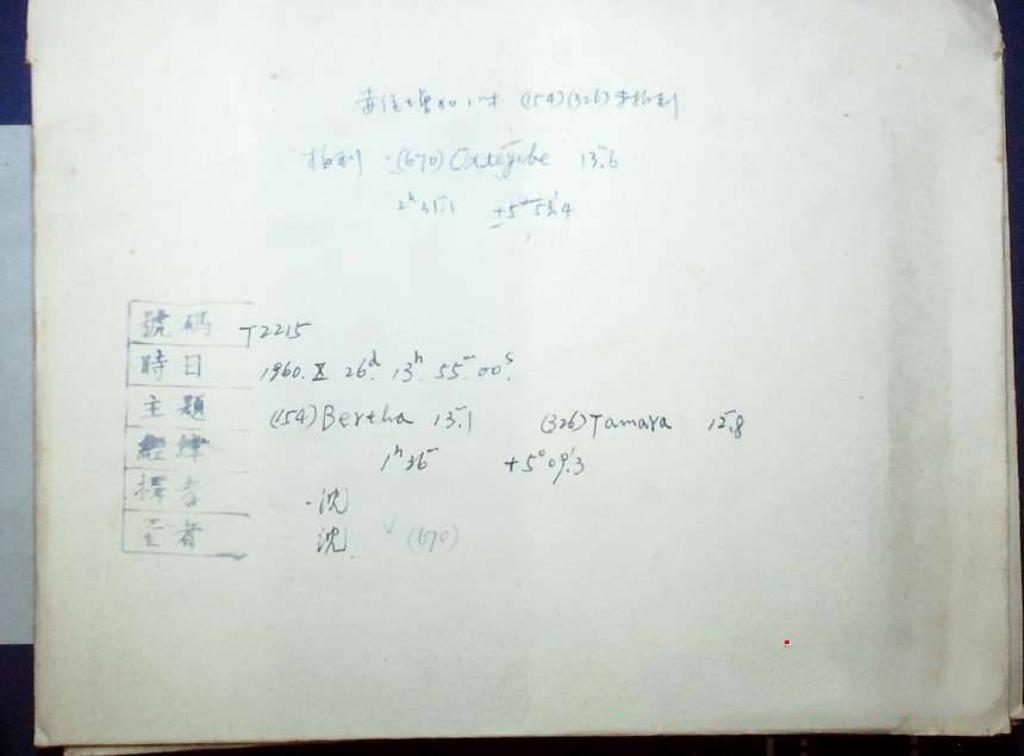 赤经增加1时 (154)(326)未拍到
拍到 (670) Ottegebe 13ᵐ.6
2ʰ31ᵐ.1 +5°53′.4
號碼 T2215
時日 1960. X 26ᵈ. 13ʰ. 55ᵐ. 00ˢ.
主題 (154) Bertha 13ᵐ.1 (326) Tamara 12ᵐ.8
經緯 1ʰ36ᵐ +5°09′.3
沈
者 沈 √ (670)